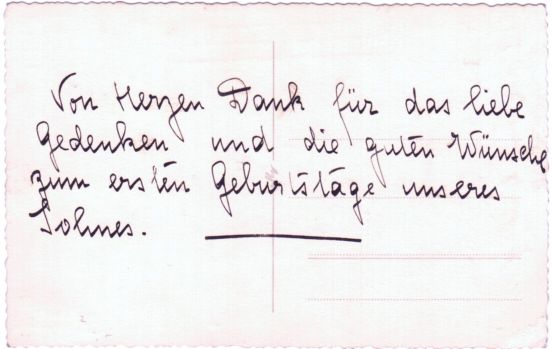 Von Herzen Dank für das liebe
Gedenken und die guten Wünsche
zum ersten Geburtstage unseres
Sohnes.